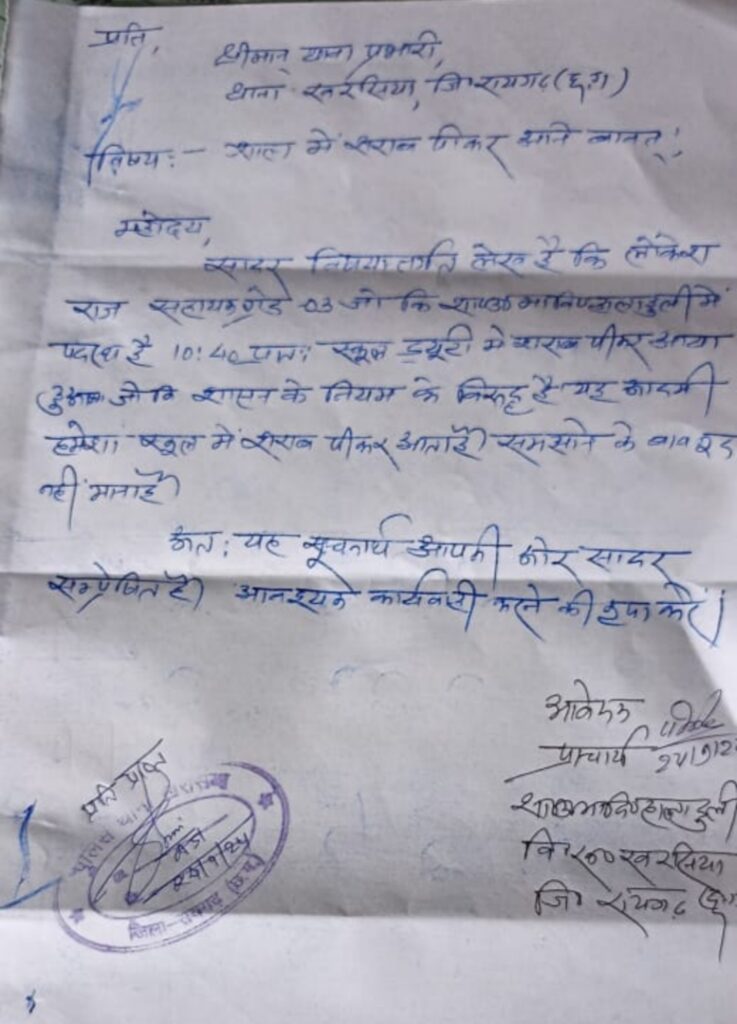 प्रति,
श्रीमान् थाना प्रभारी,
थाना खरसिया, जि० रायगढ़ (छ.ग)
विषय :- शाला में शराब पीकर आने बाबत्!
महोदय,
सादर विषयान्तर्गत लेख है कि लोकेश
राज सहायक ग्रेड 03 जो कि में
पदस्थ है 10:40 प्रातः स्कूल ड्यूटी में शराब पीकर आया
हुआ जो कि शासन के नियम के विरूद्ध है यह आदमी
हमेशा स्कूल में शराब पीकर आता है। समझाने के बावजूद
नहीं माना है।
अतः यह सूचनार्थ आपकी ओर सादर
सम्प्रेषित है। आवश्यक कार्यवाही करने की कृपा करें।
आवेदक
प्राचार्य
वि०ख० खरसिया
जि० रायगढ़ (छ.ग
प्रति प्राप्त
जिला- रायगढ़ (छ.ग.)